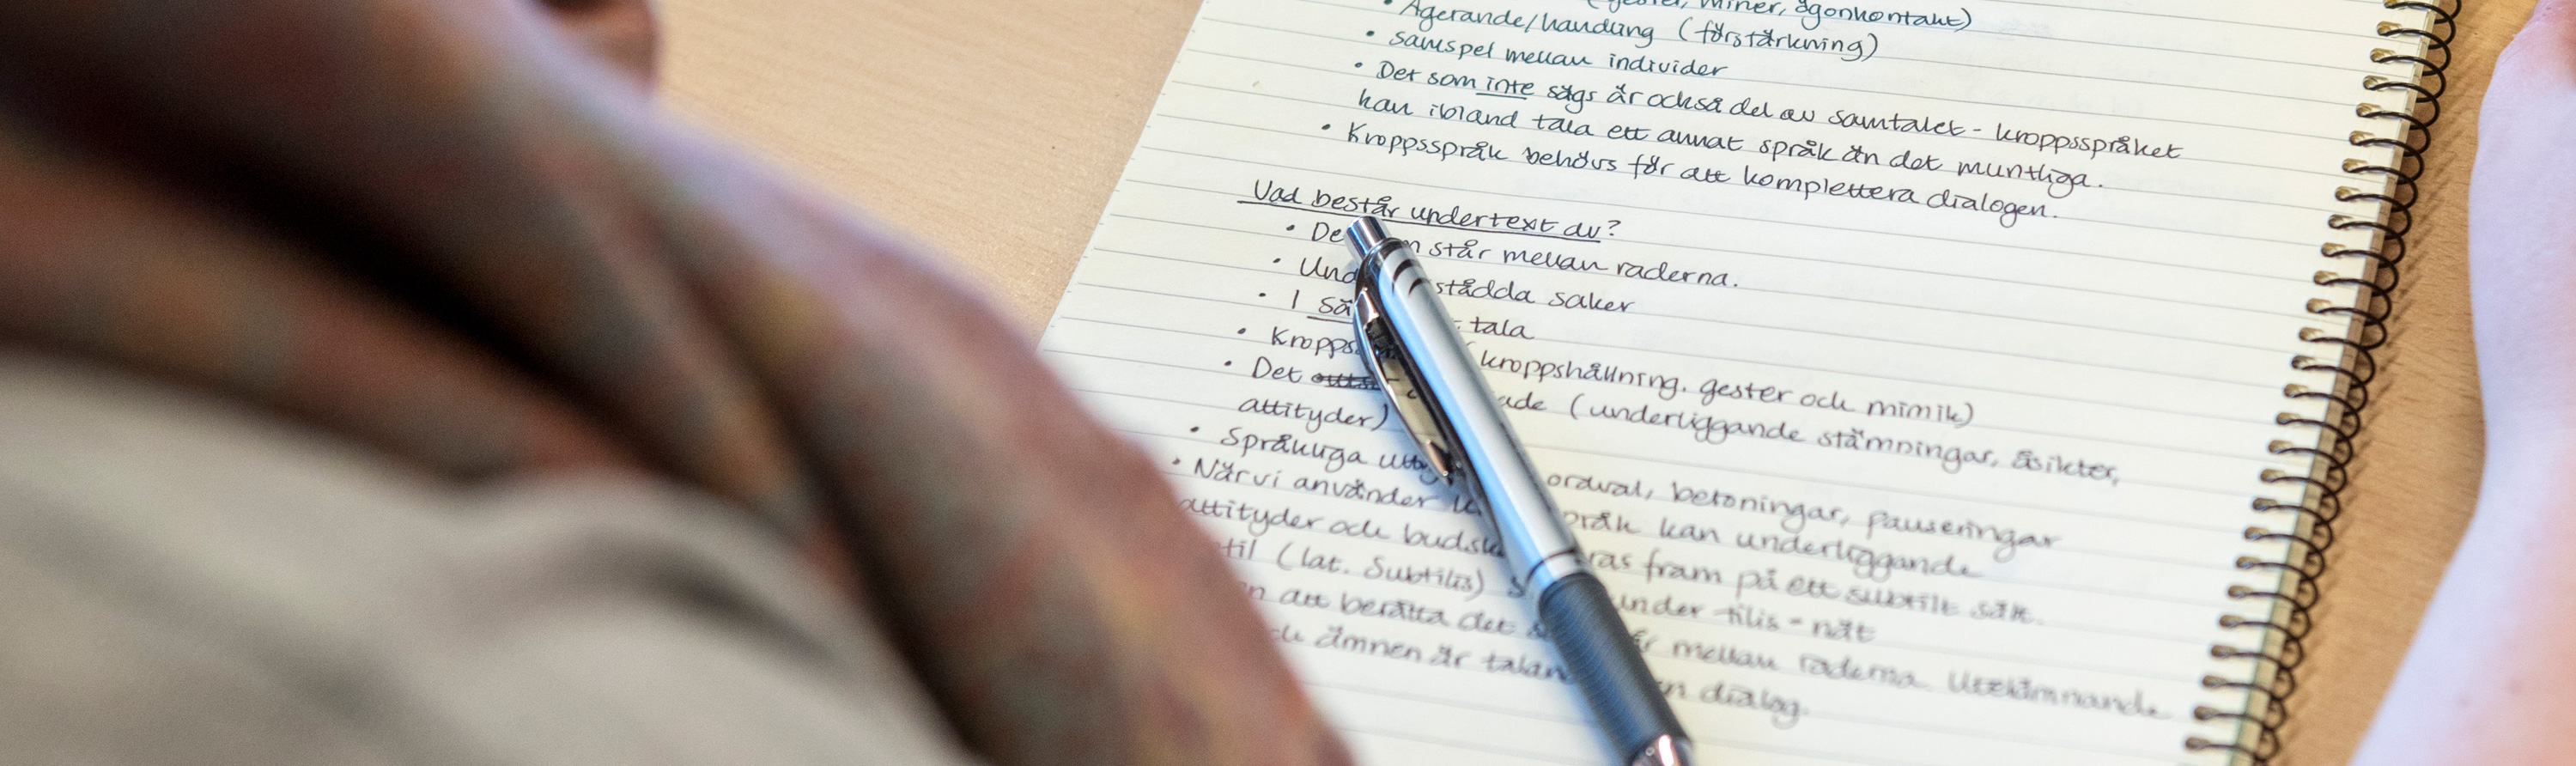 miner, ögonkontakt)
• Agerande/handling (förstärkning)
• samspel mellan individer
• Det som inte sägs är också del av samtalet - kroppsspråket
kan ibland tala ett annat språk än det muntliga.
• Kroppsspråk behövs för att komplettera dialogen.
Vad består undertext av?
• De n står mellan raderna.
• Und stådda saker
• I sä tala
• Kropps (kroppshållning, gester och mimik)
• Det ade (underliggande stämningar, åsikter,
attityder)
• Språkliga utt ordval, betoningar, pauseringar
• När vi använder k pråk kan underliggande
attityder och budsk ras fram på ett subtilt sätt.
til (lat. Subtilis) s under tilis - nät
n att berätta det s är mellan raderna. Utelämnande
ämnen är talan n dialog.